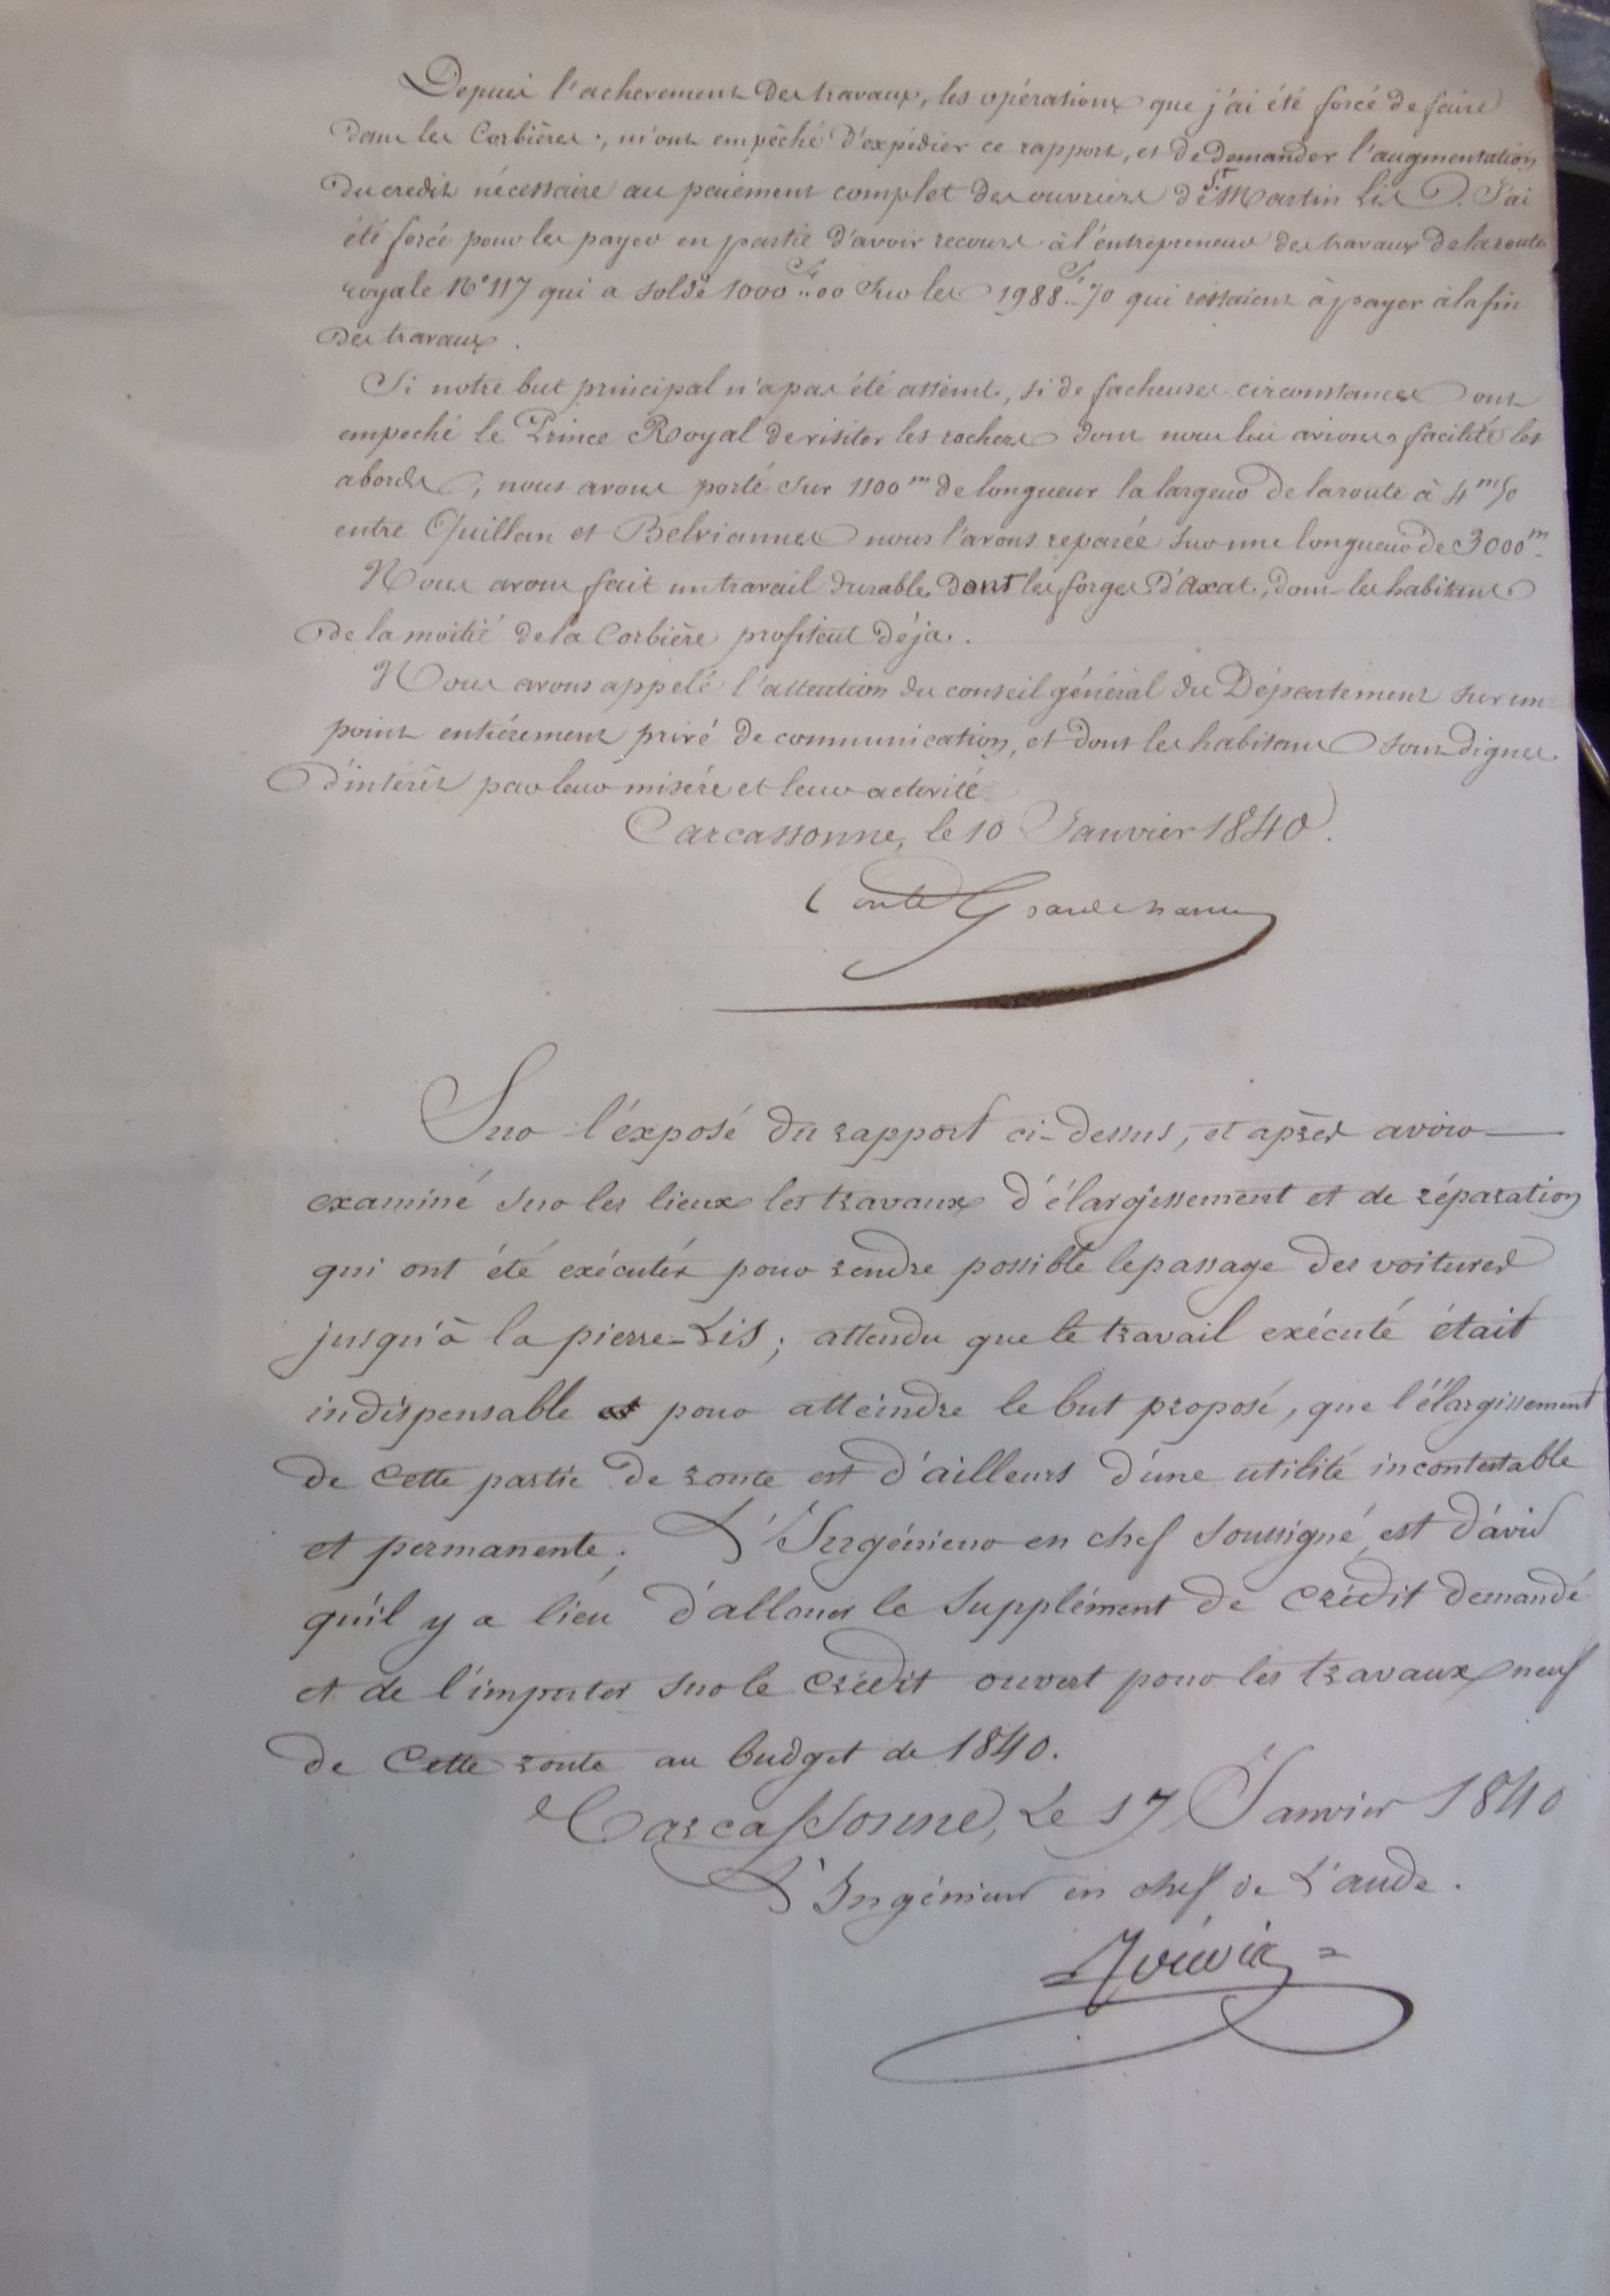 Depuis l'achevement des travaux, les opérations que j'ai été forcé de faire
dans les Corbières, m'ont empêché d'expédier ce rapport, et de demander l'augmentation
du credit nécessaire au paiement complet des ouvriers de St Martin Lis. J'ai
été forcé pour les payer en partie d'avoir recours à l'entrepreneur des travaux de la route
royale N° 117 qui a soldé 1000 fr..00 sur les 1988 fr..70 qui restaient à payer à la fin
des travaux.
Si notre but principal n'a pas été atteint, si de facheuses circonstances ont
empeché le Prince Royal de visiter les rochers dont nous lui avions facilité les
abords, nous avons porté sur 1100 m de longueur la largeur de la route à 4 m 50
entre Quillan et Belvianes nous l'avons reparée sur une longueur de 3000 m.
Nous avons fait un travail durable dont les forges d'Axat, dont les habitans
de la moitié de la Corbière profitent déja.
Nous avons appelé l'attention du conseil général du Département sur un
point entiérement privé de communication, et dont les habitans sont dignes
d'intérêt par leur misére et leur activité
Carcassonne, le 10 Janvier 1840.
Conte Grandchamp
Sur l'éxposé du rapport ci-dessus, et après avoir
examiné sur les lieux les travaux d'élargissement et de réparation
qui ont été exécutés pour rendre possible le passage des voitures
jusqu'à la pierre-Lis; attendu que le travail exécuté était
indispensable pour atteindre le but proposé, que l'élargissement
de cette partie de route est d'ailleurs d'une utilité incontestable
et permanente; L'Ingénieur en chef soussigné, est d'avis
qu'il y a lieu d'allouer le supplément de crédit demandé
et de l'imputer sur le crédit ouvert pour les travaux neufs
de cette route au budget de 1840.
Carcassonne, Le 17 Janvier 1840
L'Ingénieur en chef de L'aude.